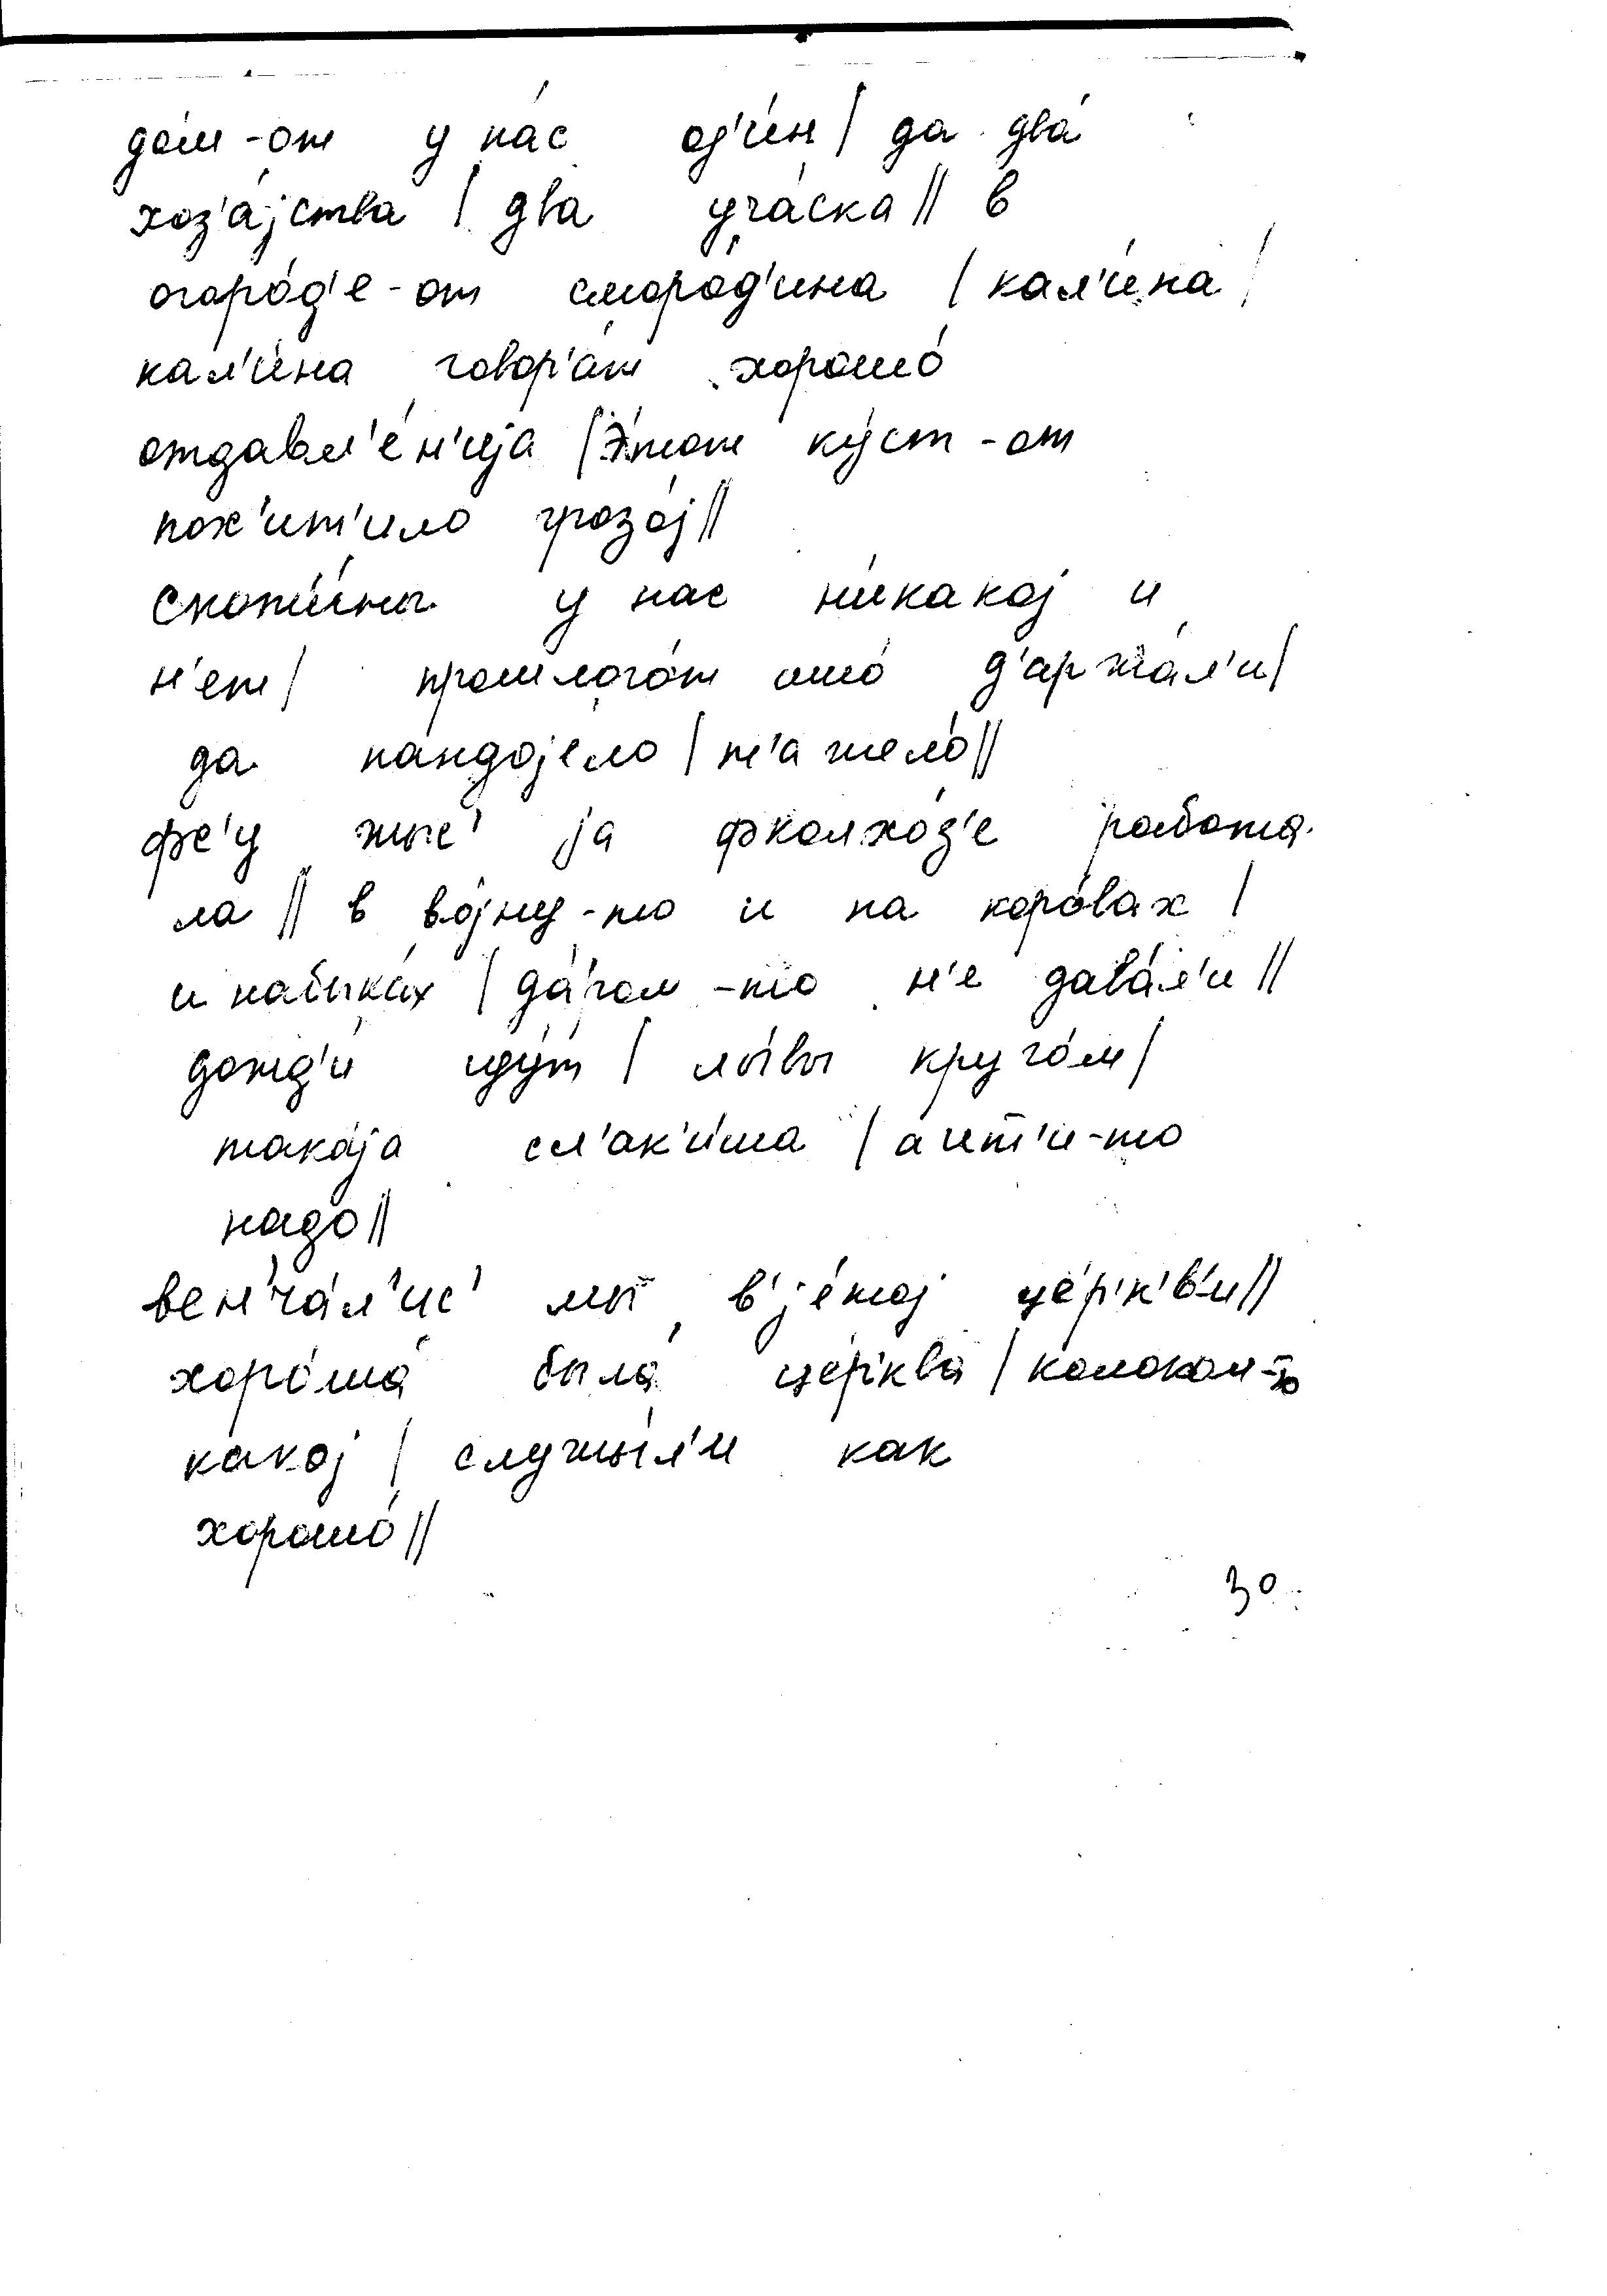 до́м-от у на́с од'и́н | да два́
хоз'а́јства | два уча́ска || в
огоро́д'е-от сморо́д'ина | кал'и́на |
кал'и́на говор'а́т хорошо́
отдавл'е́н'ија | э́тот ку́ст-от
пох'ит'ило грозо́ј ||
скоти́ны у нас никако́ј и
н'ет | прошлого́т ишо́ д'аржа́л'и |
да нандојело | т'ажело́ ||
фс'у жыс' ја фколхо́з'е работа
ла || в во́јну-то и на коро́вах |
и набыка́х | да́ром-то н'е дава́л'и ||
дожд'и́ иду́т | лы́вы круго́м |
така́ја сл'ак'и́ша | аит'и-то
надо ||
вен'ча́л'ис' мы в'је́тој це́р'к'в'и ||
хоро́ша́ была́ це́рква | колокол-то
како́ј | служы́л'и как
хорошо́ ||
30